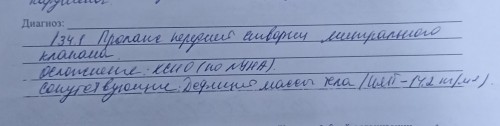 Диагноз:
I34.1 Пролапс передней створки митрального
клапана.
Осложнение: КСН0 (по NYHA).
Сопутствующие: Дефицит массы тела (ИМТ - 14,2 кг/м²).